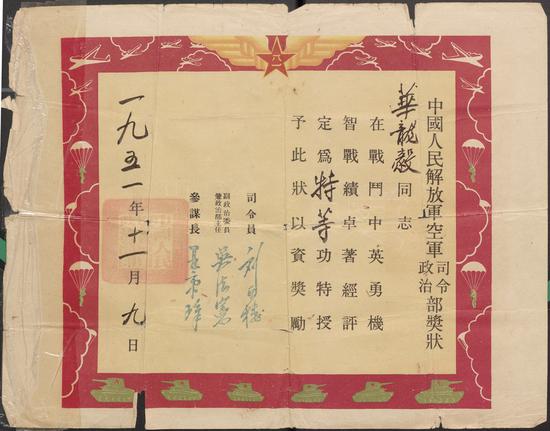 八一
中國人民解放軍空軍司令政治部獎狀
華龍毅同志
在戰鬥中英勇機
智戰績卓著經評
定爲特等功特授
予此狀以資獎勵
司令員 刘亚楼
副政治委員
兼政治部主任 吳法憲
參謀長 王秉璋
一九五一年十一月九日